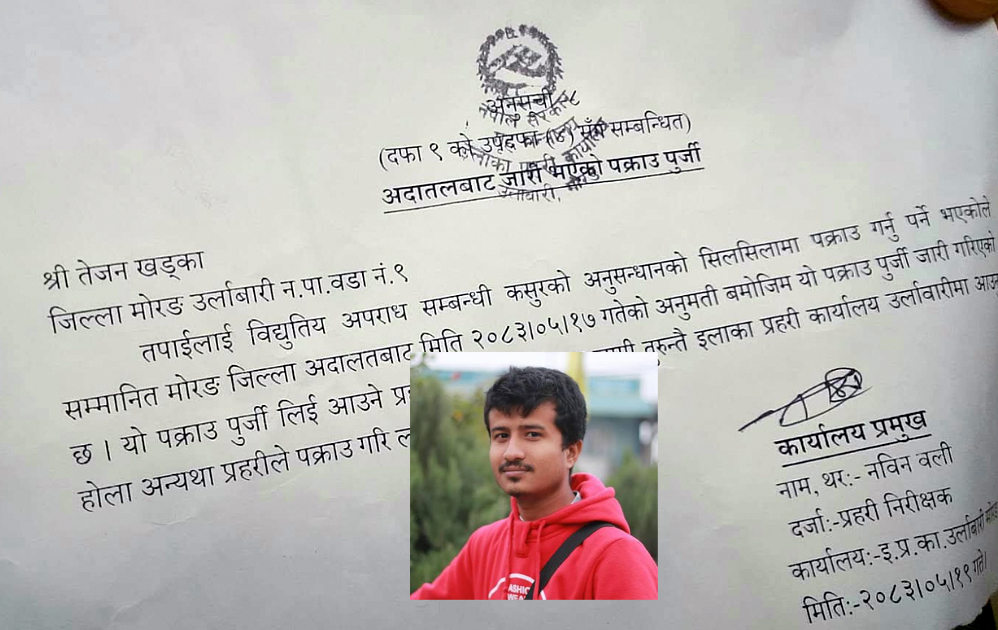 अनुसूची ८
(दफा ९ को उपदफा (४) सँग सम्बन्धित)
अदातलबाट जारी भएको पक्राउ पुर्जी
श्री तेजन खड्का
जिल्ला मोरङ उर्लाबारी न.पा.वडा नं.९
तपाईलाई विद्युतिय अपराध सम्बन्धी कसुरको अनुसन्धानको सिलसिलामा पक्राउ गर्नु पर्ने भएकोले
सम्मानित मोरङ जिल्ला अदालतबाट मिति २०८३।०५।१७ गतेको अनुमती बमोजिम यो पक्राउ पुर्जी जारी गरिएको
छ । यो पक्राउ पुर्जी लिई आउने तुरुन्तै इलाका प्रहरी कार्यालय उर्लावारीमा
होला अन्यथा प्रहरीले पक्राउ गरि
कार्यालय प्रमुख
नाम, थर:- नविन वली
दर्जा:-प्रहरी निरीक्षक
कार्यालय:-इ.प्र.का.उर्लाबारी
मिति:-२०८३।०५।१९ गते।